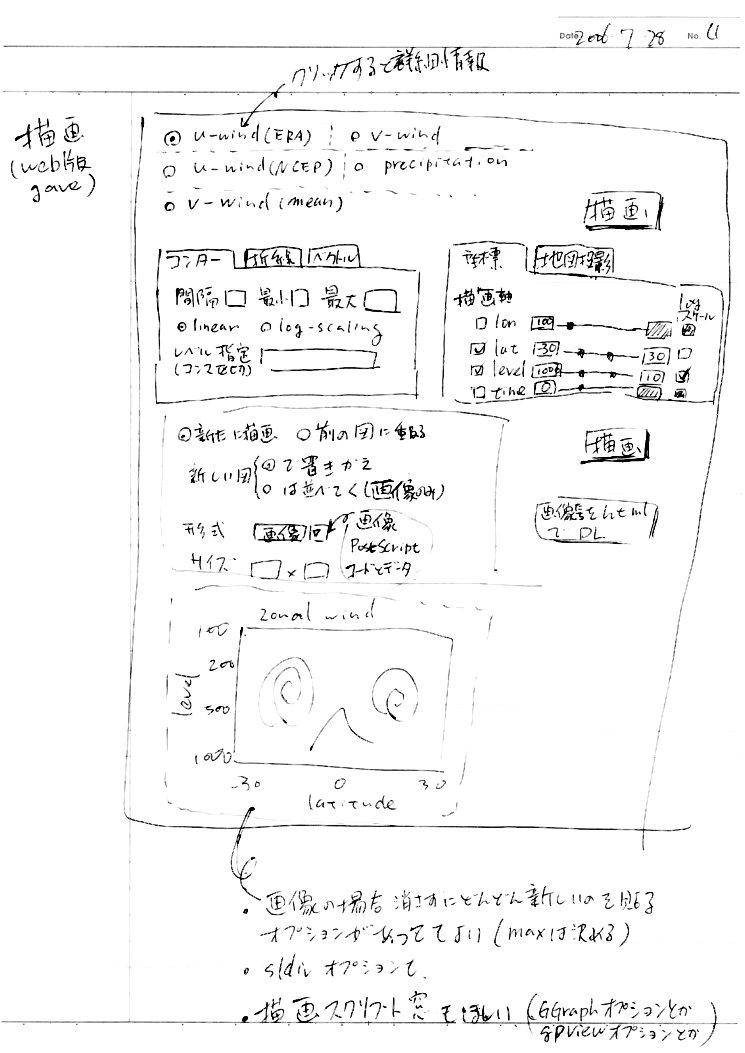 Date 2006・7・28 No. 4
クリックすると詳細情報
描画
(web版
gave)
u-wind(ERA) v-wind
u-wind(NCEP) precipitation
v-wind(mean)
描画
コンター 折線 ベクトル
間隔 最小 最大
linear log-scaling
レベル指定
(コンマ区切り)
座標 地図投影
描画軸 logスケール
lon 100
lat -30 30
level 1000 110
time 0
新たに描画 前の図に重ねる
新しい図 で置きかえ
は並べてく(画像のみ)
描画
形式 画像 画像
PostScript
コードとデータ
サイズ ×
画像等をhtml
でDL
zonal wind
100
200
500
1000
level
-30 0 30
latitude
・画像の場合消さずにどんどん新しいのを貼る
オプションがあってよい(maxは決める)
・オプションで
・描画スクリプト窓もほしい(GGraphオプションとか
gpviewオプションとか)